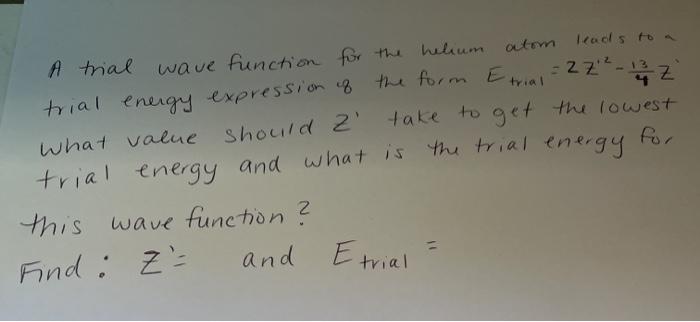 A trial wave function for the helium atom leads to a
trial energy expression of the form E trial = 2 Z'² - 13/4 Z'
what value should Z' take to get the lowest
trial energy and what is the trial energy for
this wave function?
Find : Z' = and E trial =